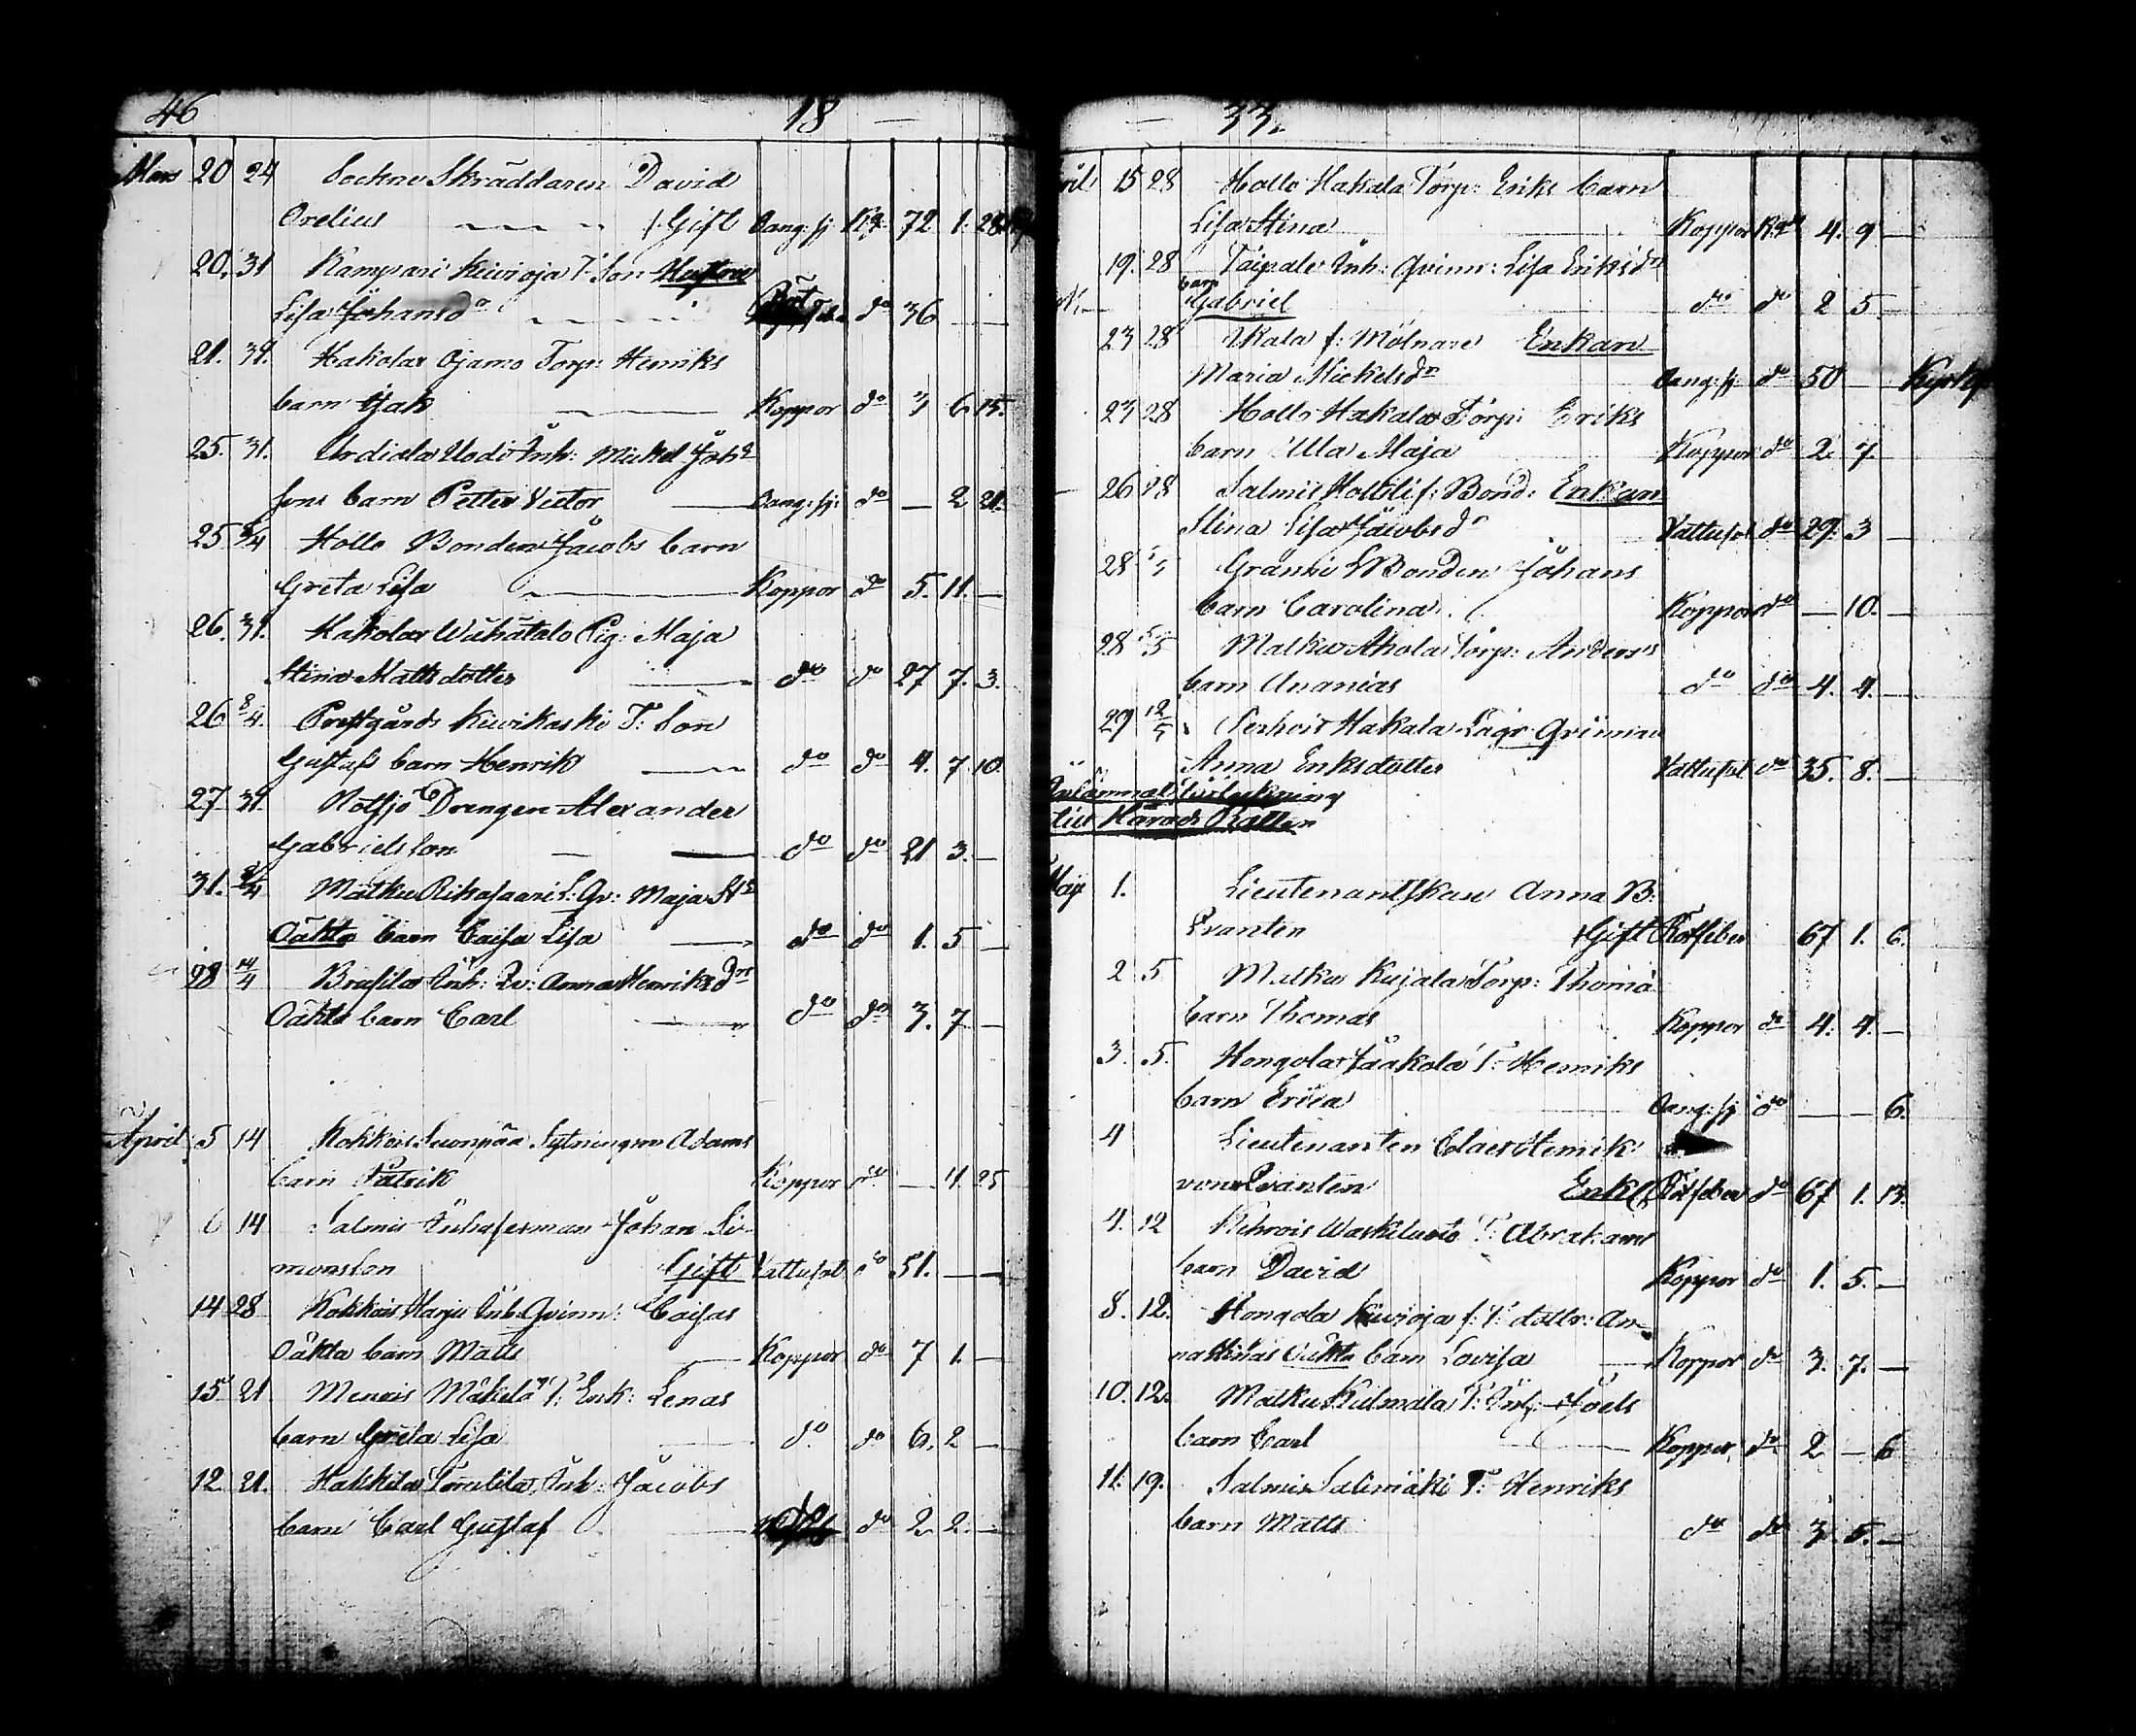 46 18
Mars 20 24 Sockne Skräddaren David
Orelius Gift Oang:sj 72 1. 28
20. 31 Kampari Kivioja T: Son Hustru
Lisa Johansdr do 36 —
21. 31. Hakolax Ojamo Torp: Henriks
barn Isak Koppor do 3 6 15.
25. 31. Urdiala Uodi Inh: Mickel Joh:
sons barn Petter Victor Oang:sj: do — 2 21.
25 8/4 Hollo Bonden Jacobs barn
Greta Lisa Koppor do 5. 11. —
26. 31. Hakolax Wähätalo Pig: Maja
Stina Mattsdotter do do 27 7. 3.
26 8/4. Prestgårds Kiwikaski T: Son
Gustafs barn Henrik do do 4. 7. 10.
27. 31. Notsjö Drengen Alexander
Gabrielsson do do 21 3. —
31. 8/4 Matku Rihasaari L: Qv: Maja St:
Oäkta barn Caisa Lisa do do 1. 5 —
28 14/4 Brusila Inh: Qv: Anna Henriksdr
Oäkta barn Carl do do 3. 7 —
April 5 14 Kokkois Suonpää Sytningsm Adams
barn Patrik Koppor do — 4. 25
6 14 Salmis Inhysesman Johan Si-
monsson Gift Vattusot do 51. — —
14 28 Kokkois Harju Inh: Qvinn: Caisas
Oäkta barn Matts Koppor do 7 1. —
15 21 Menois Mäkelä T: Enk: Lenas
barn Greta Lisa do do 6. 2 —
12. 21. Inh: Jacobs
barn Carl Gustaf do 2. 2. —
33.
15 28 Hollo Hakala Torp: Eriks barn
Lisa Stina Koppor 4. 9 —
19. 28 Taipale Inh: Qvinn: Lisa Eriksdr
barn
Gabriel do do 2 5 —
23 28 Ukala f: Mölnare Enkan
Maria Mickelsdr Oang:sj do 50 —
23 28 Hollo Hakala Torp: Eriks
barn Ulla Maja Koppor do 2. 7.
26 28 Salmis f: Bond: Enkan
Stina Lisa Jacobsdr Vattusot do 29. 3 —
28 5/5 Bonden Johans
barn Carolina Koppor do — 10. —
28 5/5 Matku Ahola Torp: Anders
barn Ananias do do 4. 4. —
29 12/5 Hakala
Anna Eriksdotter Vattusot do 35. 8. —
till Härads Rätten
Maji 1. Lieutenantskan Anna B:
Qvanten Gift Rötfeber 67 1. 6.
2 5 Matku Kujala Torp: Thoma
barn Thomas Koppor do 4. 4. —
3. 5. Hongola Jaakola T: Henriks
barn Erica Oang:sj do — — 6.
4 Lieutenanten Claes Henrik
von Qvanten Enkl: Rötfeber do 67 1. 13.
4. 12 T: Abrahams
barn David Koppor do 1. 5. —
8. 12. Hongola Kivioja f: T: dottr: An-
na Stinas Oäkta barn Lovisa Koppor do 3. 7. —
10. 12. Matku Kulmala T: Inh: Joels
barn Carl Koppor do 2 — 6
11. 19. Salmis Salimäki T: Henriks
barn Matts do do 3. 5. —